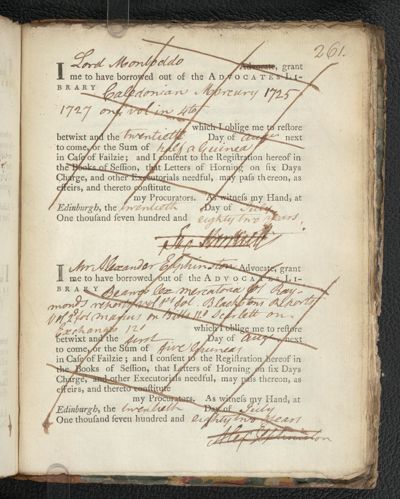 261.
I Lord Monboddo Advocate, grant
me to have borrowed out of the ADVOCATES LI-
BRARY Caledonian Mercury 1725
1727 one vol in 4to
which I oblige me to restore
betwixt and the twentieth Day of next
to come, or the Sum of half a Guinea
in Case of Failzie; and I consent to the Registration hereof in
the Books of Session, that Letters of Horning on six Days
Charge, and other Executorials needful, may pass thereon, as
effeirs, and thereto constitute
my Procurators. As witness my Hand, at
Edinburgh, the twentieth Day of
One thousand seven hundred and eighty two years.
I Mr Alexander Elphinston Advocate, grant
me to have borrowed out of the ADVOCATES LI-
BRARY Lex mercatoria Ray-
monds reports vol 1st fol. Blackstons Reports
vol 2d fol. Marius on Bills 12o Scarlett on
Exchange 12o
which I oblige me to restore
betwixt and the first Day of Augt next
to come, or the Sum of five Guineas
in Case of Failzie; and I consent to the Registration hereof in
the Books of Session, that Letters of Horning on six Days
Charge, and other Executorials needful, may pass thereon, as
effeirs, and thereto constitute
my Procurators. As witness my Hand, at
Edinburgh, the twentieth Day of July
One thousand seven hundred and eighty two years
Alex Elphinston